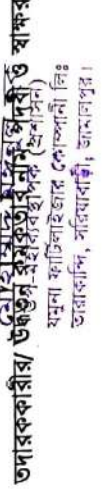 তদারককারীর/ উর্দ্ধতন কর্মকর্তার নাম, পদবী ও স্বাক্ষর
মহাব্যবস্থাপক (প্রশাসন)
যমুনা ফার্টিলাইজার কোম্পানী লিঃ
তারাকান্দি, সরিষাবাড়ী, জামালপুর।